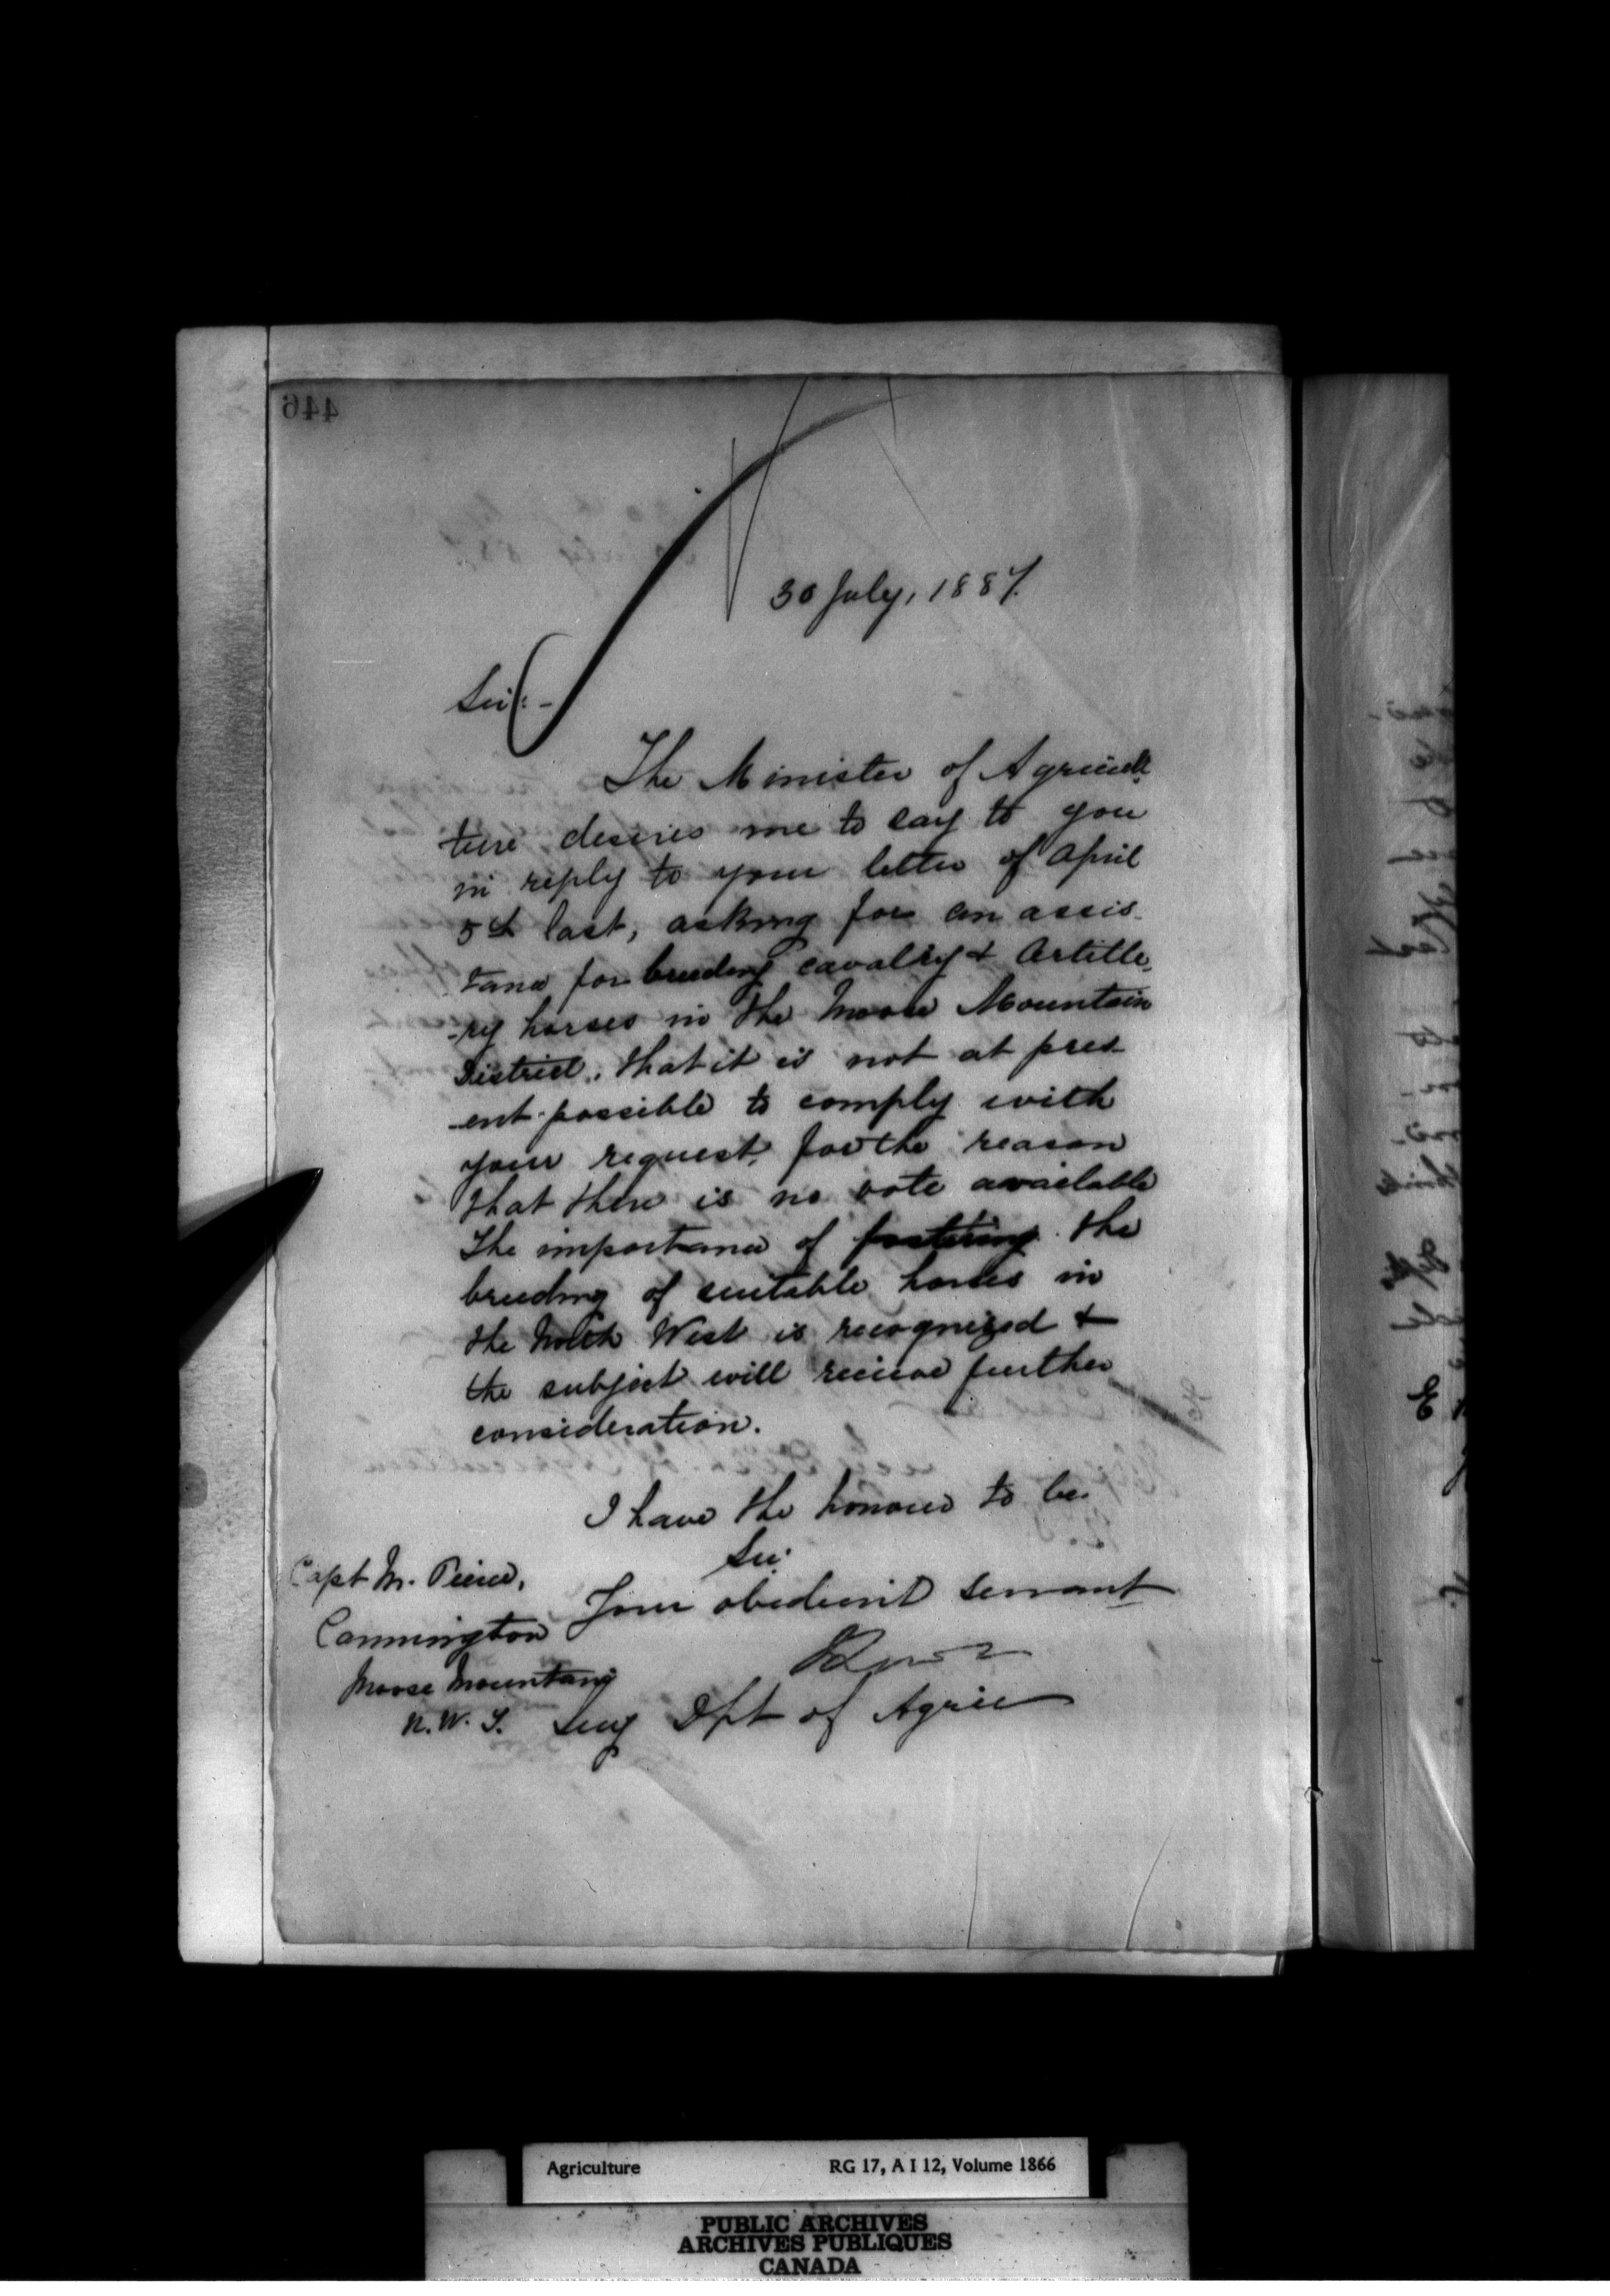 446
30 July, 1887.
Sir:-
The Minister of Agricul-
ture desires me to say to you
in reply to your letter of April
5th last, asking for an assis-
tance for breeding cavalry & Artille-
-ry horses in the Moose Mountain
District, that it is not at pres-
-ent possible to comply with
your request, for the reason
that there is no vote available
The importance of fostering the
breeding of suitable horses in
the North West is recognized &
the subject will receive further
consideration.
I have the honour to be
Sir
Your obedient servant
Secy Dpt of Agric
Capt M. Pierce,
Cannington
Moose Mountain
N.W.T.
Agriculture RG 17, A I 12, Volume 1866
PUBLIC ARCHIVES
ARCHIVES PUBLIQUES
CANADA